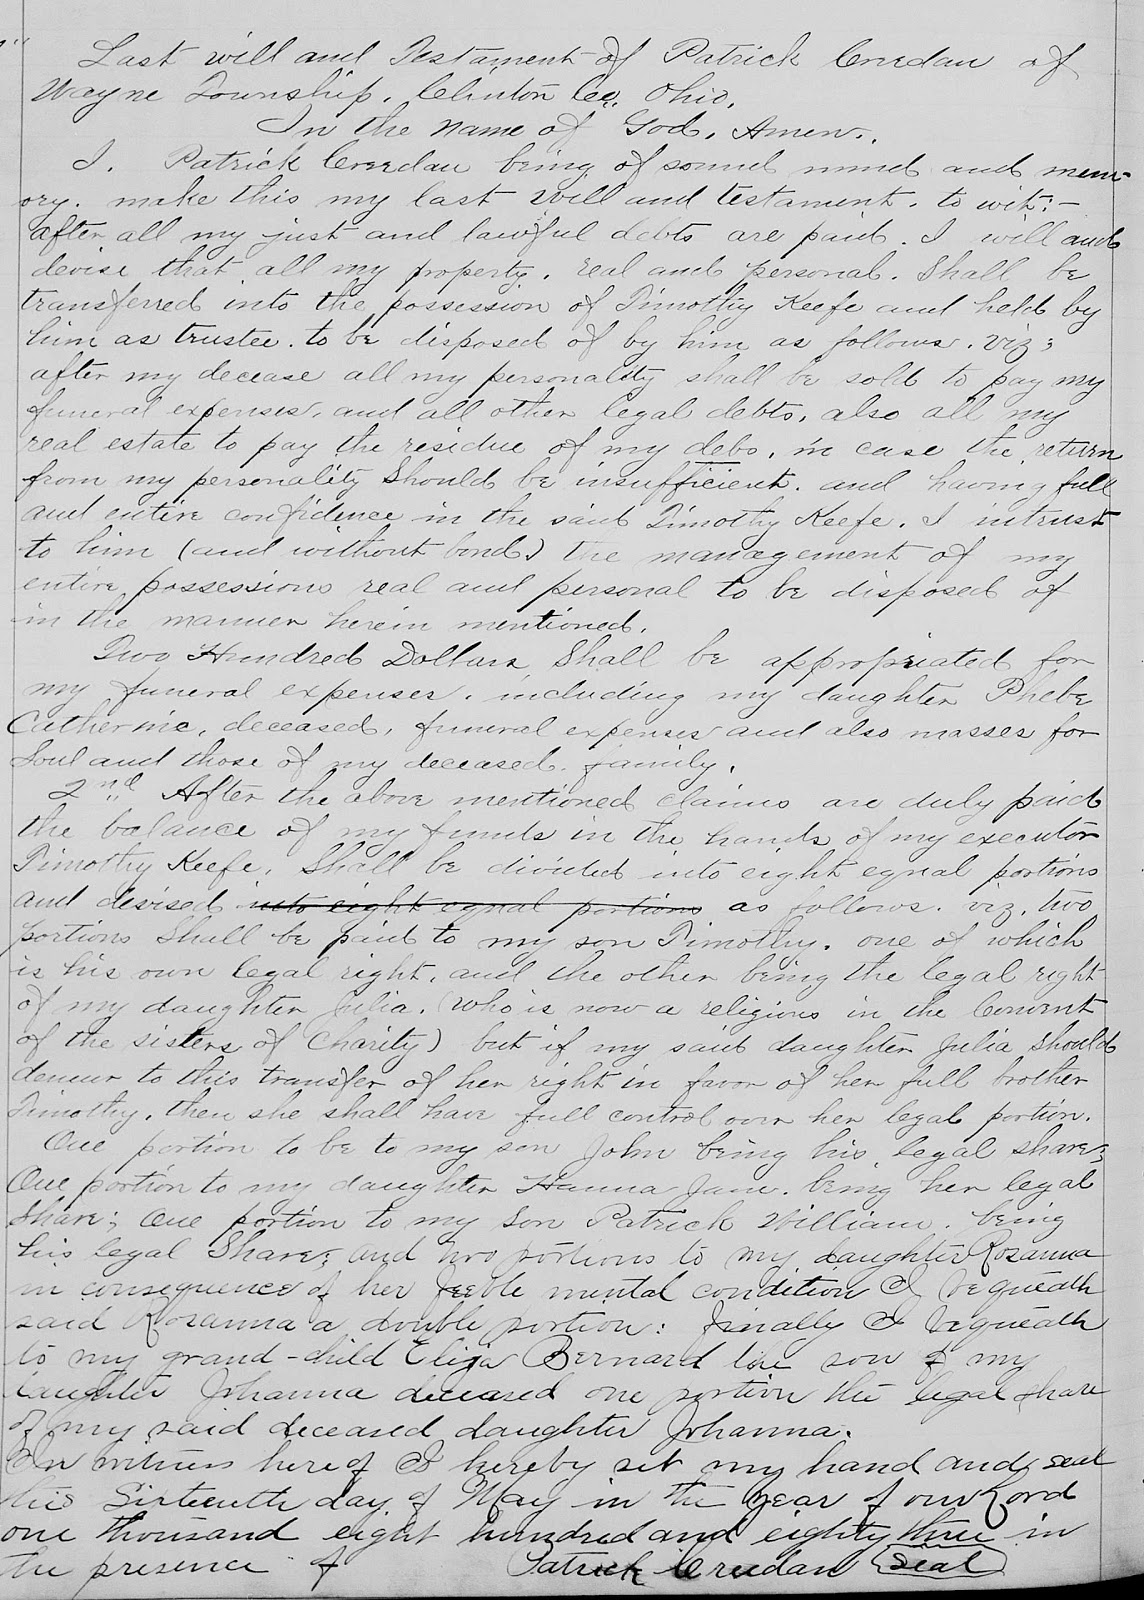 Last will and Testament of Patrick Creedan of
Wayne Township, Clinton Co, Ohio,
In the name of God, Amen.
I, Patrick Creedan being of sound mind and mem-
ory, make this my last will and testament, to wit:-
after all my just and lawful debts are paid, I will and
devise that all my property, real and personal, Shall be
transferred into the possession of Timothy Keefe and held by
him as trustee, to be disposed of by him as follows, viz;
after my decease all my personality shall be sold to pay my
funeral expenses, and all other legal debts, also all my
real estate to pay the residue of my debs, in case the return
from my personality Should be insufficient, and having full
and entire confidence in the said Timothy Keefe, I intrust
to him (and without bond) the management of my
entire possessions real and personal to be disposed of
in the manner herein mentioned.
Two Hundred Dollars Shall be appropriated for
my funeral expenses, including my daughter Phebe
Catherine, deceased, funeral expenses and also masses for
Soul and those of my deceased family.
2nd After the above mentioned claims are duly paid
the balance of my funds in the hands of my executor
Timothy Keefe, Shall be divided into eight equal portions
and devised into eight equal portions as follows, viz, two
portions Shall be paid to my son Timothy, one of which
is his own legal right, and the other being the legal right
of my daughter Julia, (who is now a religious in the Convent
of the sisters of Charity) but if my said daughter Julia Should
demur to this transfer of her right in favor of her full brother
Timothy, then she shall have full control over her legal portion.
One portion to be to my son John being his legal share;
One portion to my daughter Hanna Jane, being her legal
Share; One portion to my Son Patrick William, being
his legal Share; and two portions to my daughter Rosanna
in consequence of her feeble mental condition I bequeath
said Rosanna a double portion: finally I bequeath
to my grand-child Eliga Bernard the son of my
daughter Johanna deceased one portion the legal share
of my said deceased daughter Johanna.
In witness hereof I hereby set my hand and seal
this Sixteenth day of May in the year of our Lord
one thousand eight hundred and eighty three in
the presence of Patrick Creedan Seal